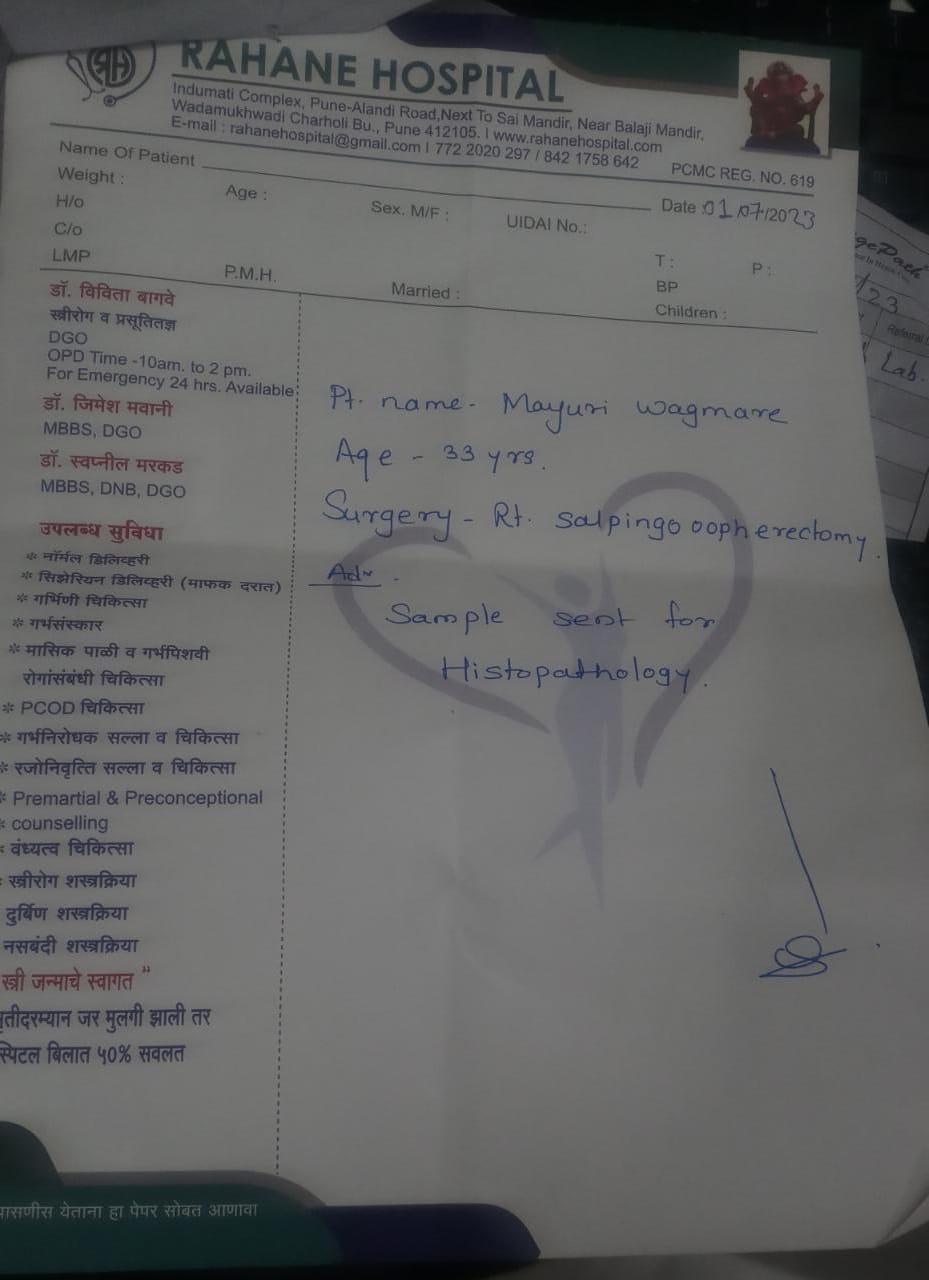 RAHANE HOSPITAL
Indumati Complex, Pune-Alandi Road,Next To Sai Mandir, Near Balaji Mandir,
Wadamukhwadi Charholi Bu., Pune 412105. I www.rahanehospital.com
E-mail : rahanehospital@gmail.com I 772 2020 297 / 842 1758 642
PCMC REG. NO. 619
Name Of Patient
Date :01/07/2023
Weight :
Age :
Sex. M/F :
UIDAI No.:
H/o
C/o
T :
P :
LMP
P.M.H.
Married :
BP
Children :
डॉ. विविता बागवे
स्त्रीरोग व प्रसूतितज्ञ
DGO
OPD Time -10am. to 2 pm.
For Emergency 24 hrs. Available
डॉ. जिमेश मवानी
MBBS, DGO
डॉ. स्वप्नील मरकड
MBBS, DNB, DGO
उपलब्ध सुविधा
* नॉर्मल डिलिव्हरी
* सिझेरियन डिलिव्हरी (माफक दरात)
* गर्भिणी चिकित्सा
* गर्भसंस्कार
* मासिक पाळी व गर्भपिशवी
रोगांसंबंधी चिकित्सा
* PCOD चिकित्सा
* गर्भनिरोधक सल्ला व चिकित्सा
* रजोनिवृत्ति सल्ला व चिकित्सा
* Premartial & Preconceptional
* counselling
* वंध्यत्व चिकित्सा
स्त्रीरोग शस्त्रक्रिया
दुर्बिण शस्त्रक्रिया
नसबंदी शस्त्रक्रिया
स्त्री जन्माचे स्वागत "
जर मुलगी झाली तर
बिलात ५०% सवलत
Pt. name - Mayuri Wagmare
Age - 33 yrs.
Surgery - Rt. salpingo oopherectomy.
Adv -
Sample sent for
Histopathology.
येताना हा पेपर सोबत आणावा
/23
Referral
Lab.